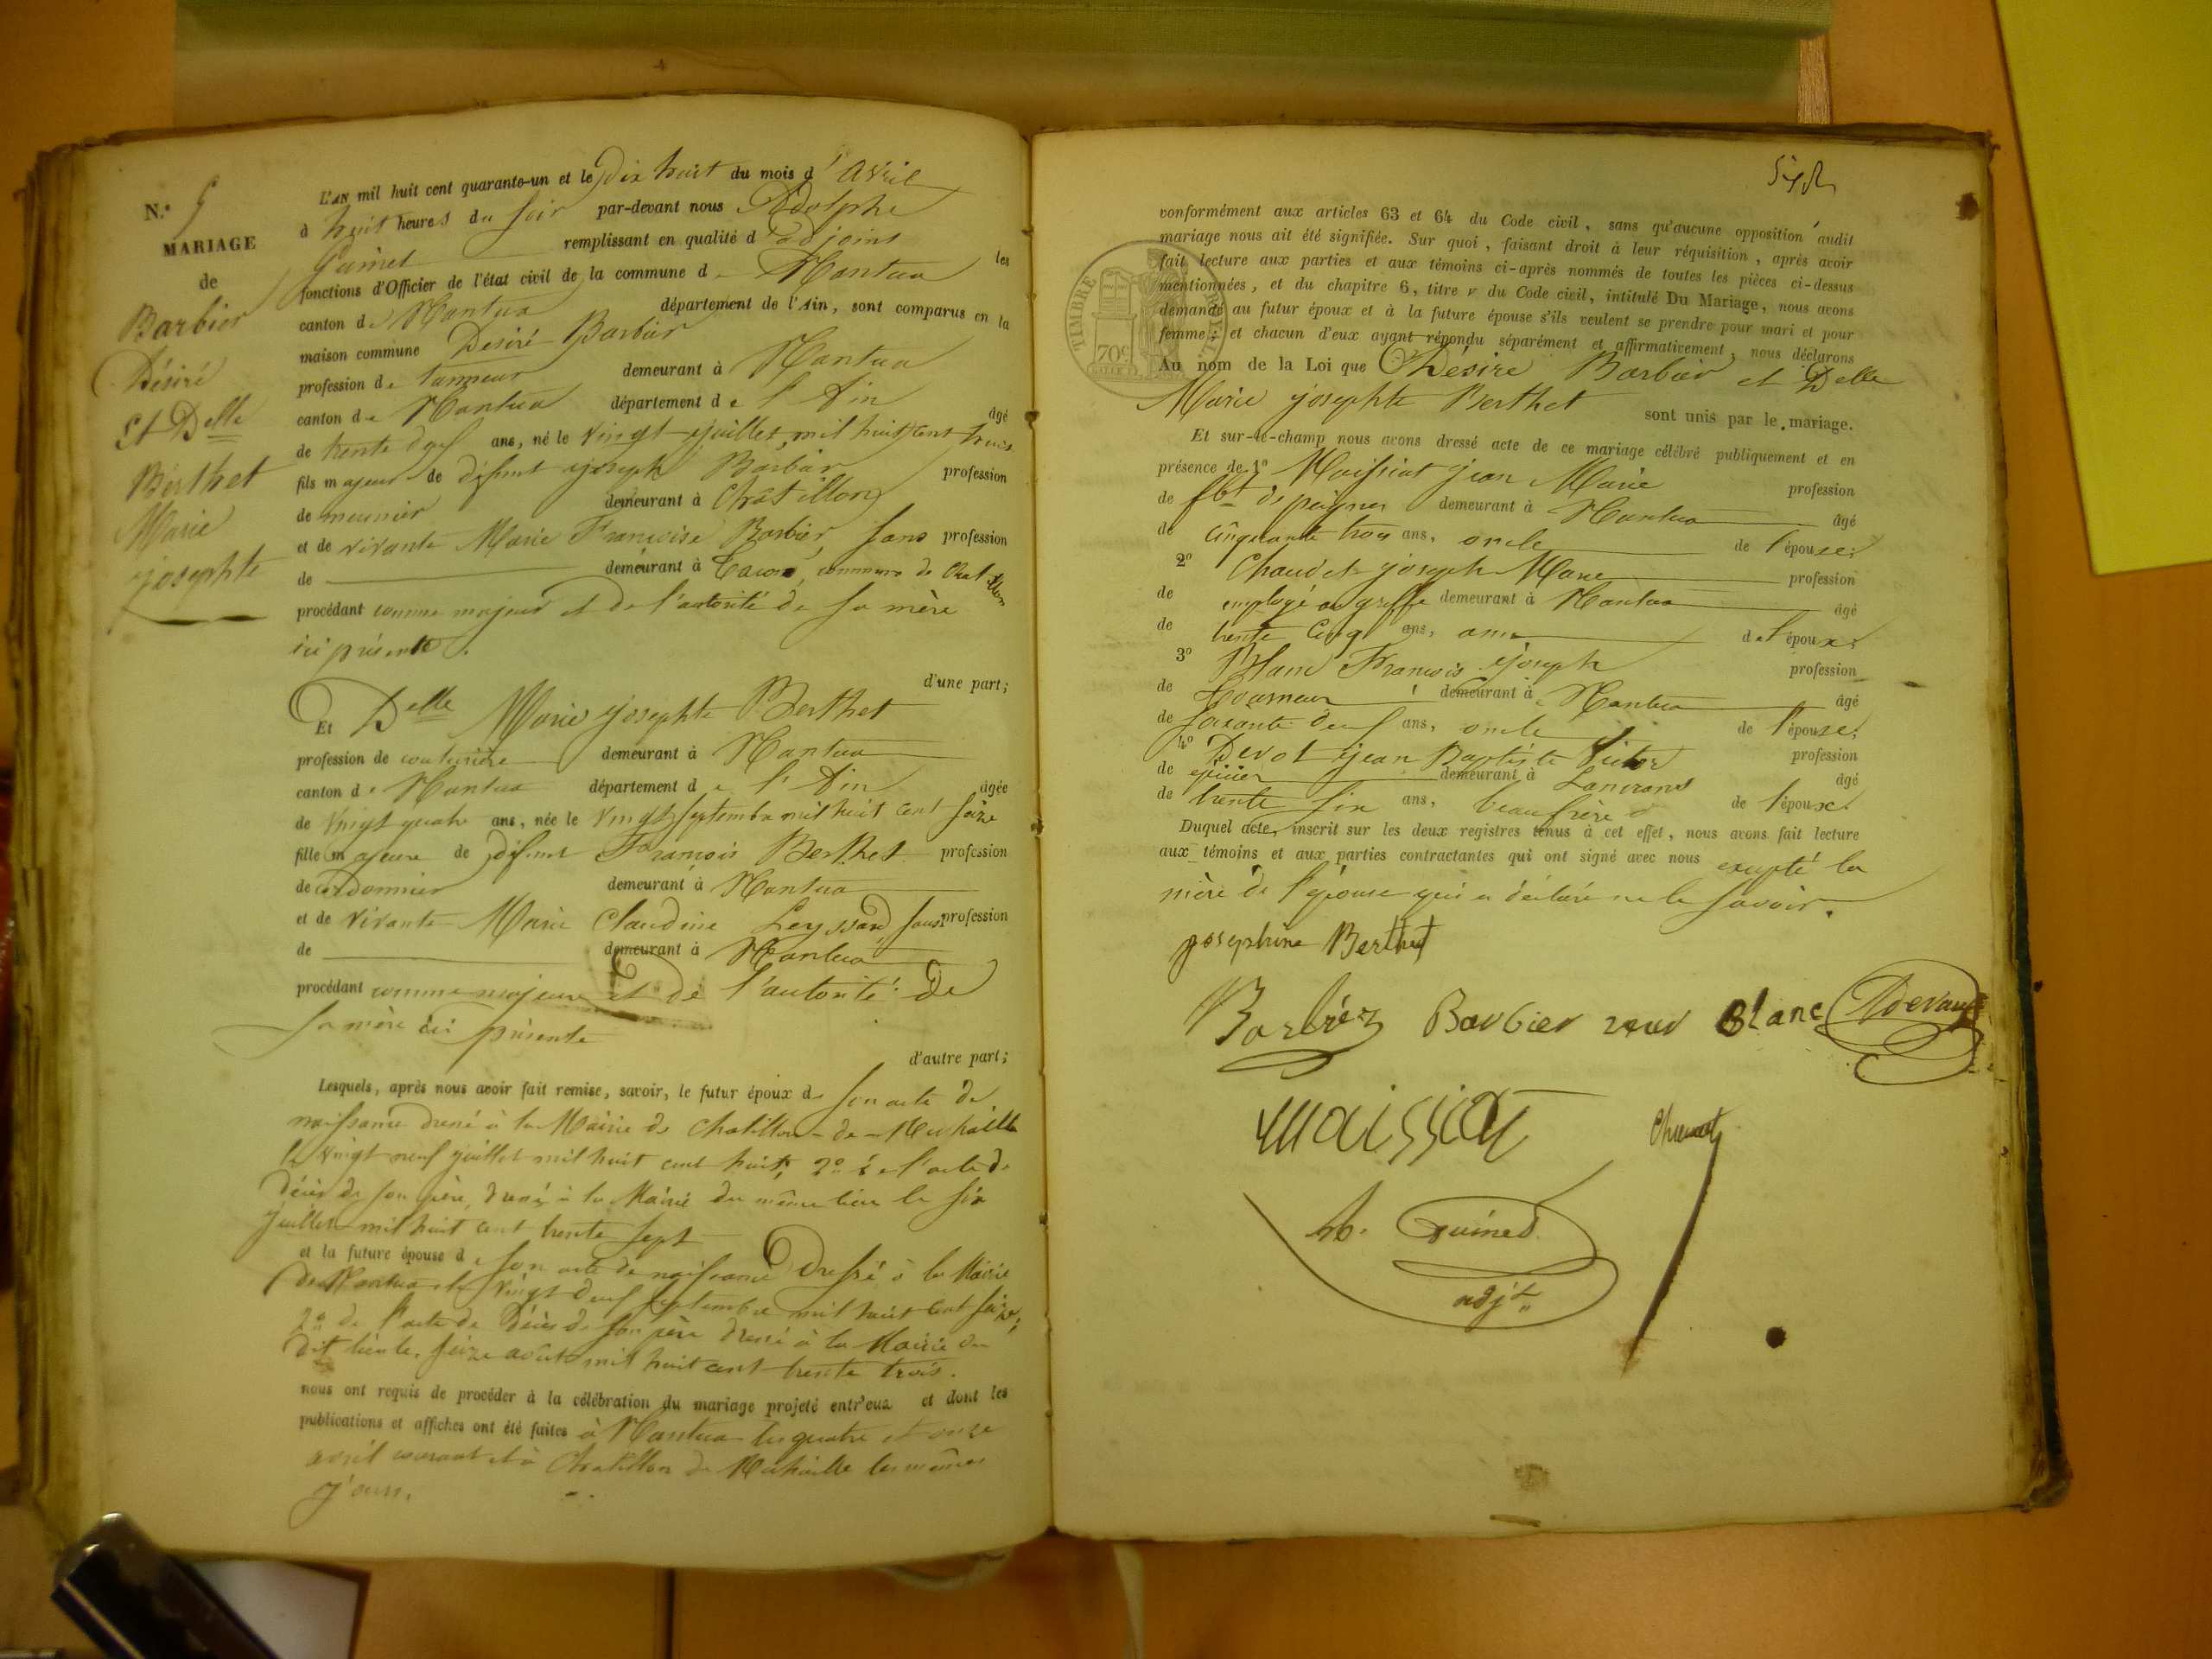 N.o
MARIAGE
de
Barbier
Désiré
Et Delle
Berthet
Marie
josephte
L'AN mil huit cent quarante-un et le dix huit du mois d'avril
à huit heures du soir par-devant nous Adolphe
Guinet remplissant en qualité d'adjoint les
fonctions d'Officier de l'état civil de la commune de Nantua
canton de Nantua département de l'Ain, sont comparus en la
maison commune Désiré Barbier
profession de tanneur demeurant à Nantua
canton de Nantua département de l'Ain âgé
de trente ans, né le vingt juillet mil huit cent
fils majeur de défunt joseph Barbier profession
de meunier demeurant à Chatillon
et de vivante Marie Françoise Barbier, sans profession
de demeurant à Tacon, commune de Chatillon
procédant comme majeur et de l'autorité de sa mère
ici présente.
d'une part;
Et Delle Marie josephte Berthet
profession de couturière demeurant à Nantua
canton de Nantua département de l'Ain âgée
de vingt quatre ans, née le vingt septembre mil huit cent seize
fille majeure de défunt François Berthet profession
de cordonnier demeurant à Nantua
et de vivante Marie Claudine Leyssard sans profession
de demeurant à Nantua
procédant comme majeure et de l'autorité de
sa mère ici présente
d'autre part;
Lesquels, après nous avoir fait remise, savoir, le futur époux de son acte de
naissance dressé à la Mairie de Chatillon-de-Michaille
le vingt neuf juillet mil huit cent huit; 2o de l'acte de
décès de son père, dressé à la Mairie du même lieu le six
juillet mil huit cent trente sept
et la future épouse de son acte de naissance dressé à la Mairie
de Nantua le vingt deux septembre mil huit cent seize;
2o de l'acte de décès de son père dressé à la Mairie du
dit lieu le seize août mil huit cent trente trois.
nous ont requis de procéder à la célébration du mariage projeté entr'eux et dont les
publications et affiches ont été faites à Nantua les quatre et onze
avril courant et à Chatillon de Michaille les mêmes
jours.
conformément aux articles 63 et 64 du Code civil, sans qu'aucune opposition audit
mariage nous ait été signifiée. Sur quoi, faisant droit à leur réquisition, après avoir
fait lecture aux parties et aux témoins ci-après nommés de toutes les pièces ci-dessus
mentionnées, et du chapitre 6, titre v du Code civil, intitulé Du Mariage, nous avons
demandé au futur époux et à la future épouse s'ils veulent se prendre pour mari et pour
femme; et chacun d'eux ayant répondu séparément et affirmativement, nous déclarons
Au nom de la Loi que Désiré Barbier et Delle
Marie josephte Berthet sont unis par le mariage.
TIMBRE ROYAL
70c
Et sur-le-champ nous avons dressé acte de ce mariage célébré publiquement et en
présence de 1o Maissiat jean Marie profession
de fbt de peignes demeurant à Nantua âgé
de cinquante trois ans, oncle de l'épouse;
2o Chaudet joseph Marie profession
de employé au greffe demeurant à Nantua âgé
de trente cinq ans, ami de l'époux;
3o Blanc François joseph profession
de tourneur demeurant à Nantua âgé
de soixante deux ans, oncle de l'épouse;
4o jean Baptiste Victor profession
de épicier demeurant à Lancrans âgé
de trente six ans, beau frère de l'époux.
Duquel acte, inscrit sur les deux registres tenus à cet effet, nous avons fait lecture
aux témoins et aux parties contractantes qui ont signé avec nous excepté la
mère de l'épouse qui a déclaré ne le savoir.
josephine Berthet
Barbier Barbier Blanc
Maissiat
Guinet
adjt